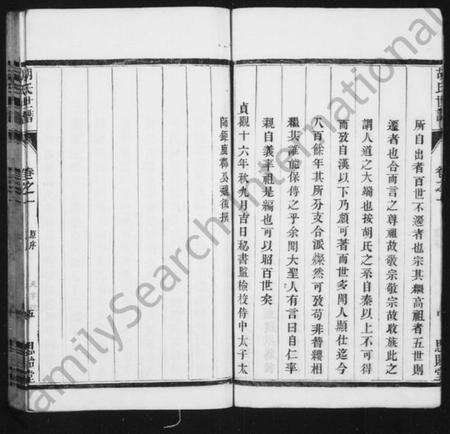 胡氏世譜
所自出者百世不遷者也宗其繼高祖者五世則
遷者也合而言之尊祖故敬宗敬宗故收族此之
謂人道之大端也按胡氏之系自秦以上不可得
而攷自漢以下乃顯可著而世多聞人顯仕迄今
八百餘年其所分支合派燦然可攷苟非替纓相
繼其誰能保停之乎余聞大聖人有言曰自仁率
親自義率祖是編也可以昭百世矣
貞觀十六年秋九月吉日秘書監檢校侍中太子太
師鉅鹿郡公魏徵撰
胡氏世譜
卷之一
原序
五
思貽堂
FamilySearch International